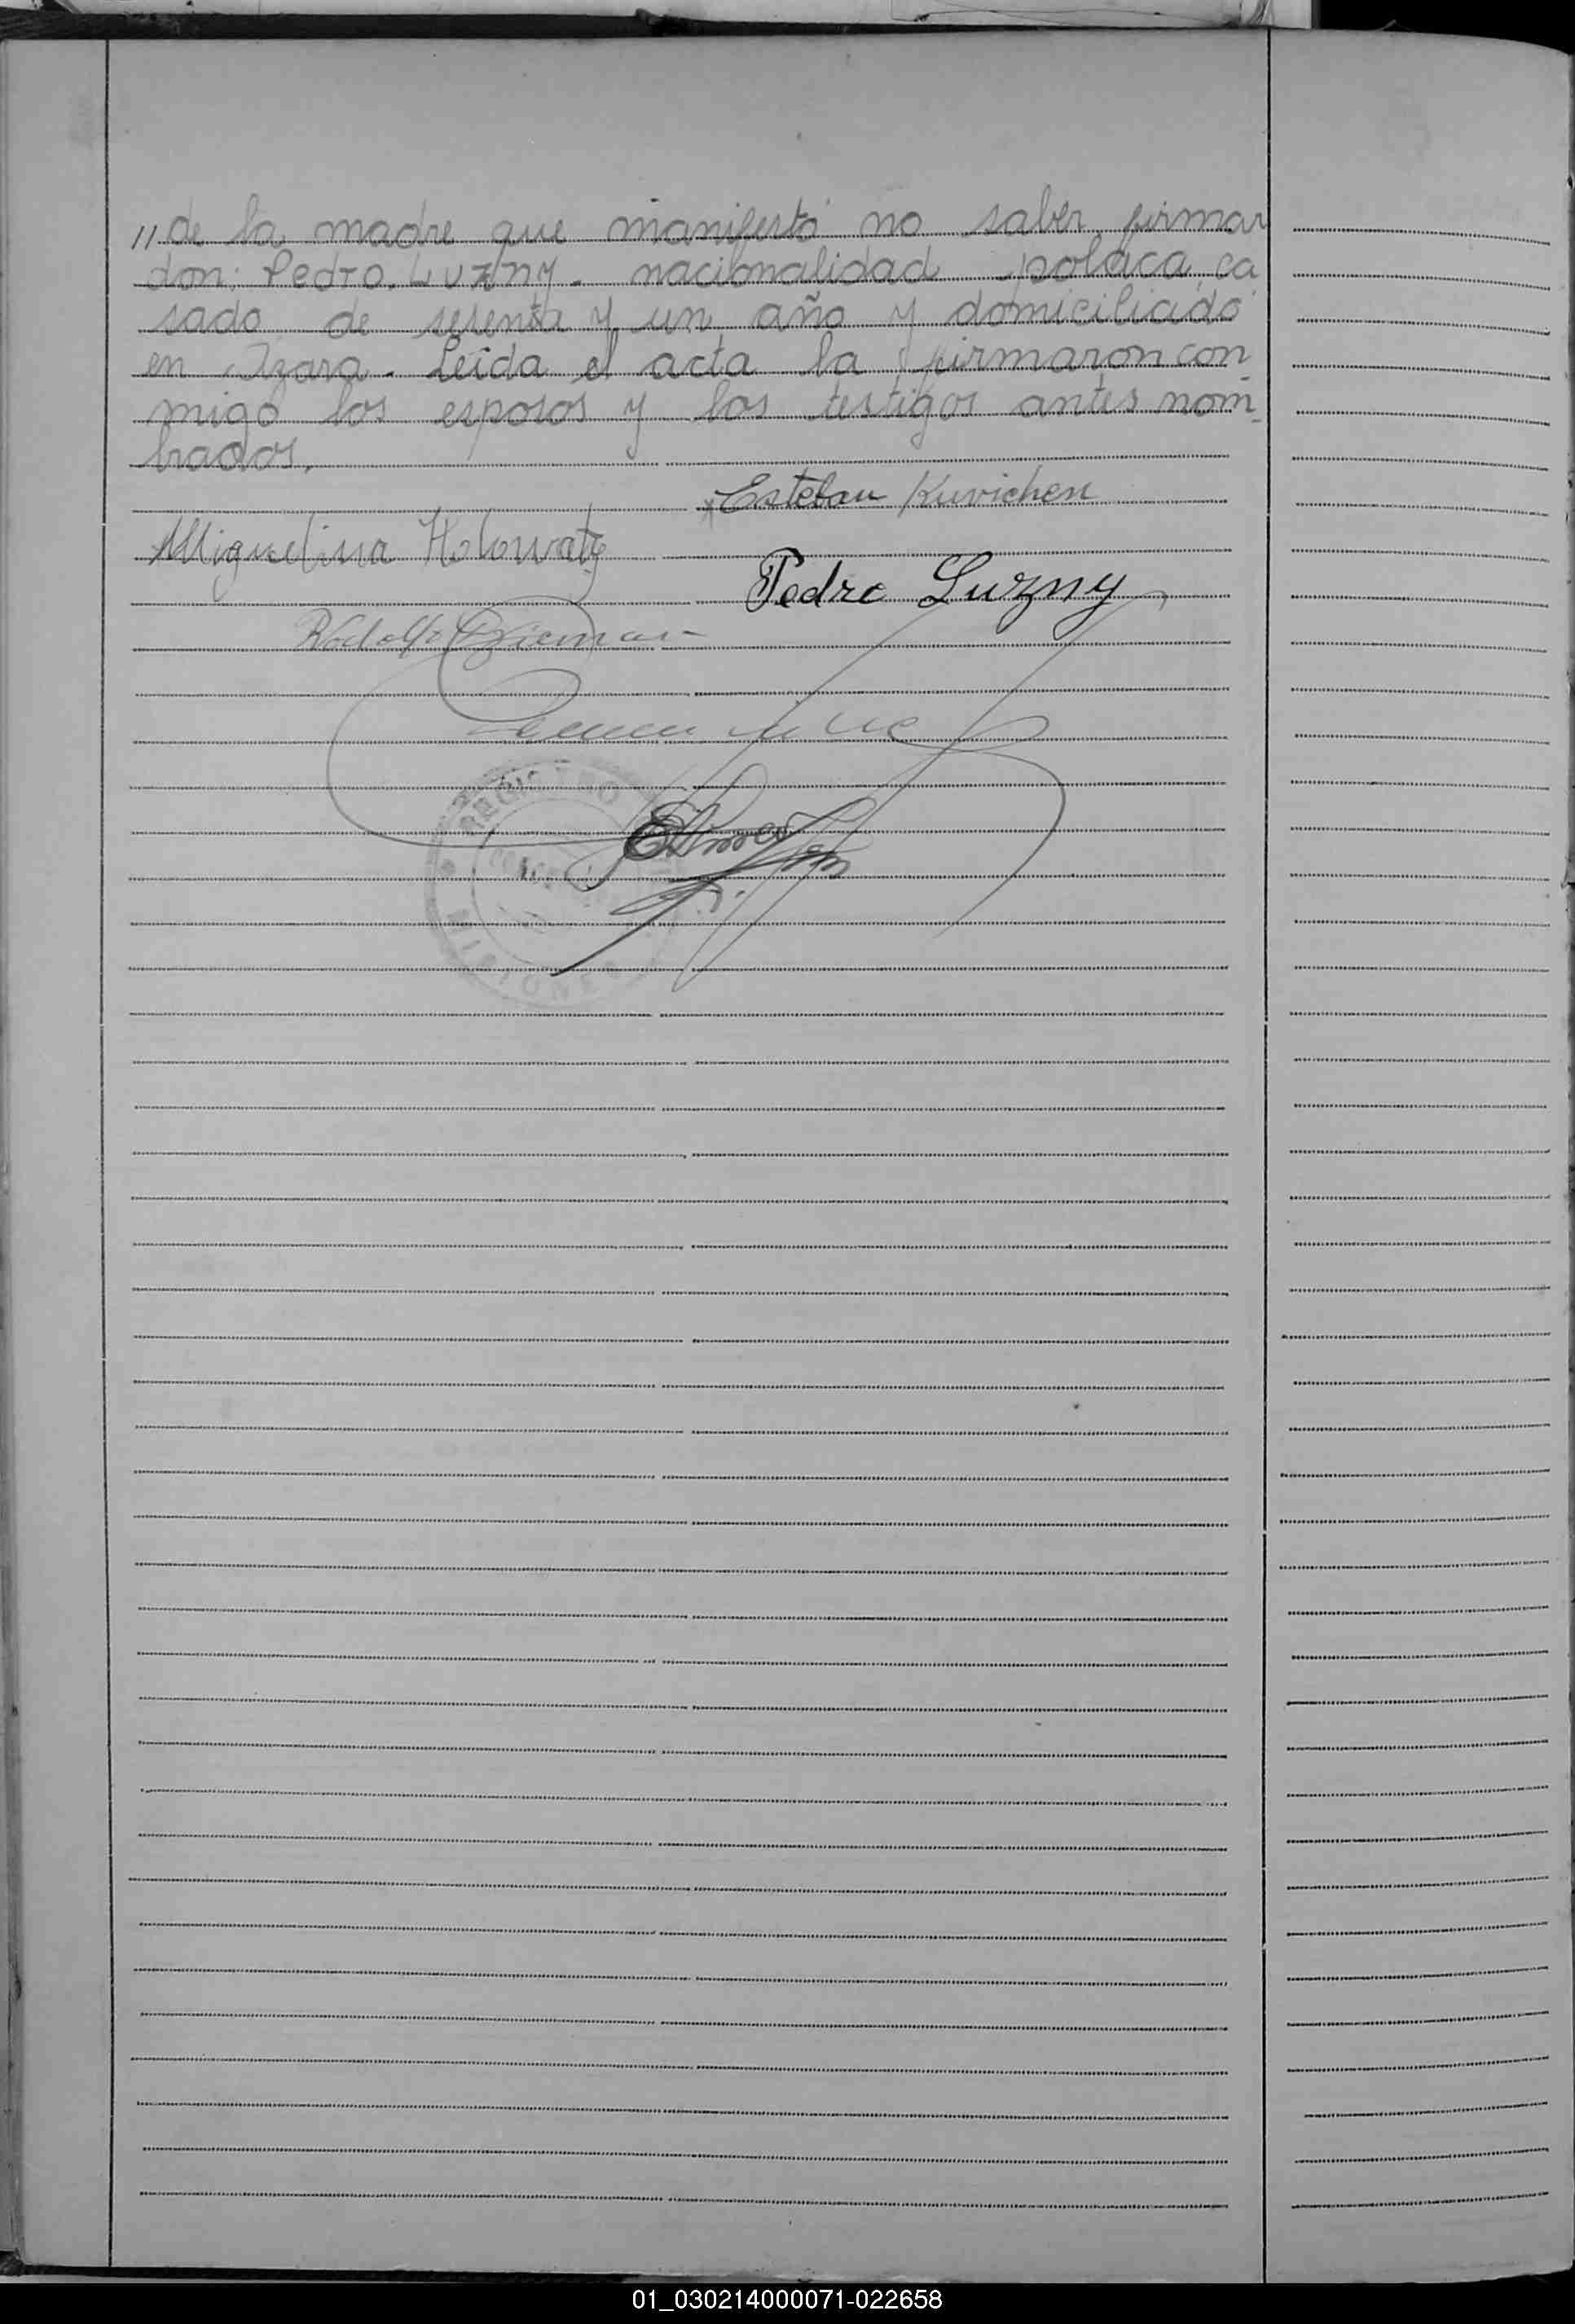 // de la madre que manifestó no saber firmar
don: Pedro. Luzny. nacionalidad polaca, ca
sado de sesenta y un año y domiciliado
en Azara. Leída el acta la firmaron con
migo los esposos y los testigos antes nom
brados.
Esteban Kuvichen
Miguelina Holowaty
Pedro Luzny
Rodolfo
REGISTRO
MISIONES
01_030214000071-022658